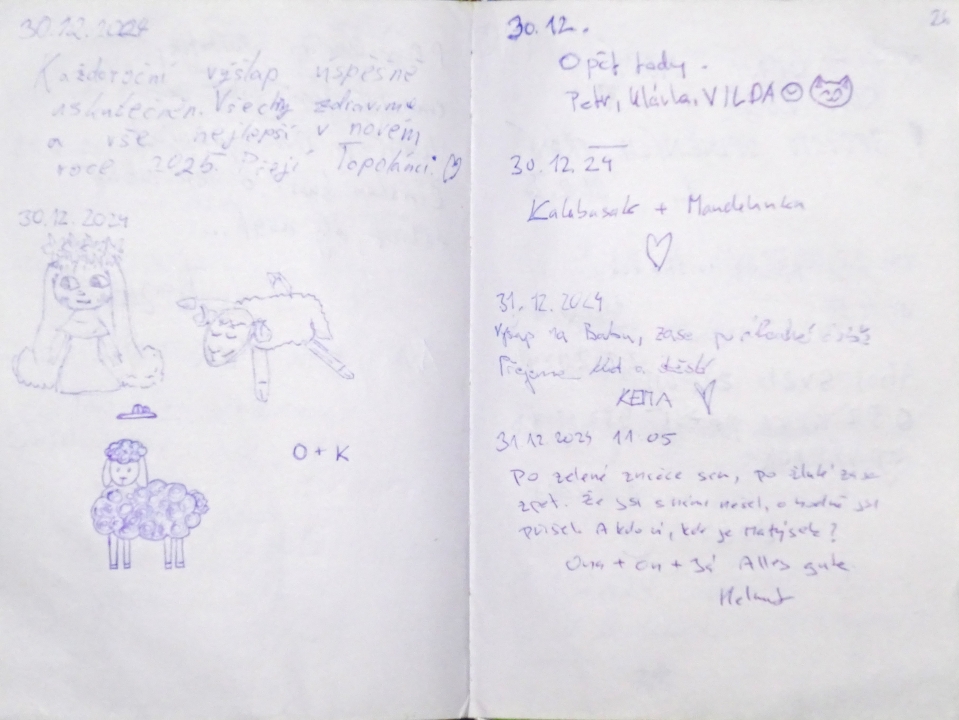 30.12.2024
Každoroční výšlap úspěšně
uskutečněn. Všechny zdravíme
a vše nejlepší v novém
roce 2025. Přejí Topolánci
30.12.2024
O + K
26
30.12.
Opět tady.
Petr, Klárka, VILDA
30.12.24
Kalabasak + Mandelinka
31.12.2024
na zase po
Přejeme a štěstí
31.12.2024 11:05
Po zelené značce sem, po žluté zase
zpět. Že jsi s námi nešel, o hodně jsi
přišel. A kdo ví, kde je Matýsek?
Ona + on + Já Alles gute
Helmut